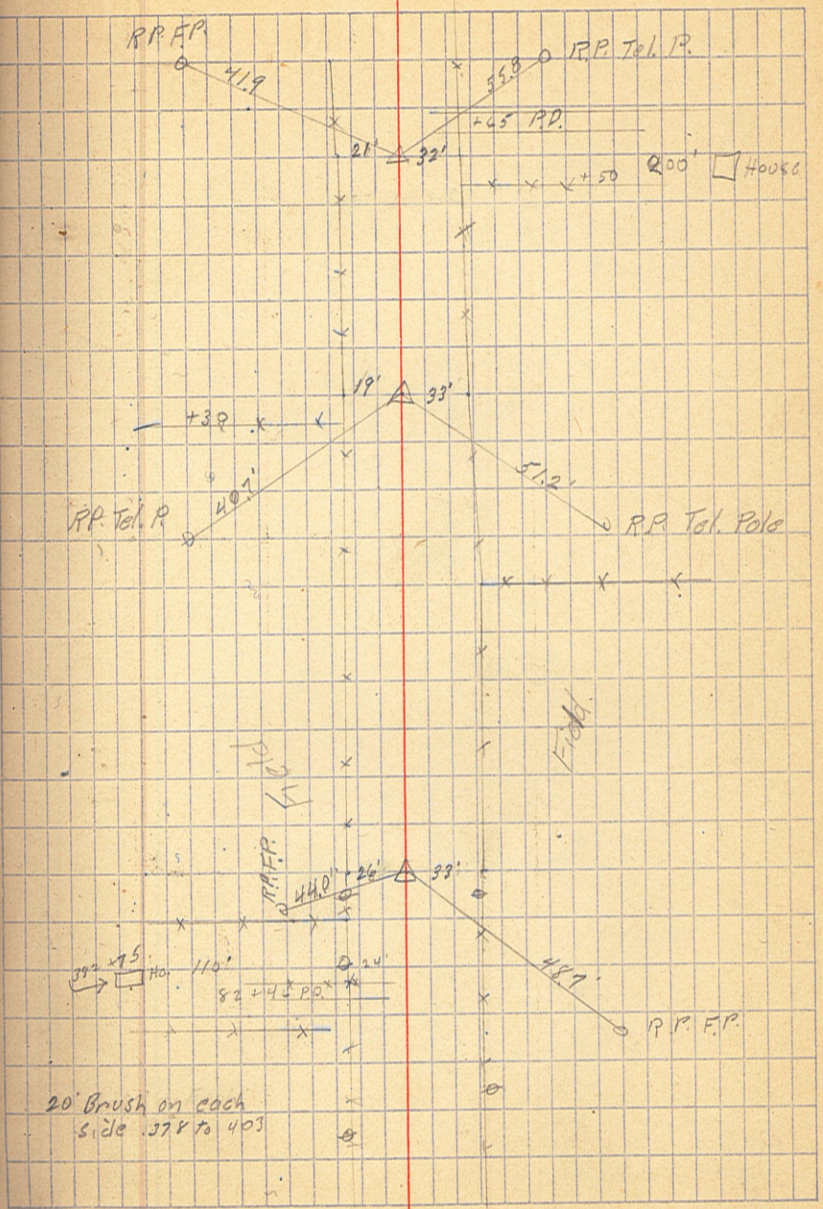 R.P. F.P.
R.P. Tel. P.
41.9
55.8
+65 P.D.
21' 32'
+50 200' House
19' 33'
+38
40.7'
51.2'
R.P. Tel. P.
R.P. Tel. Pole
Field
Field.
R.P. F.P.
44.0' 26' 33'
+75 Ho. 110' 24'
82 +45 P.D.
48.7'
R.P. F.P.
20' Brush on each
side 378 to 403